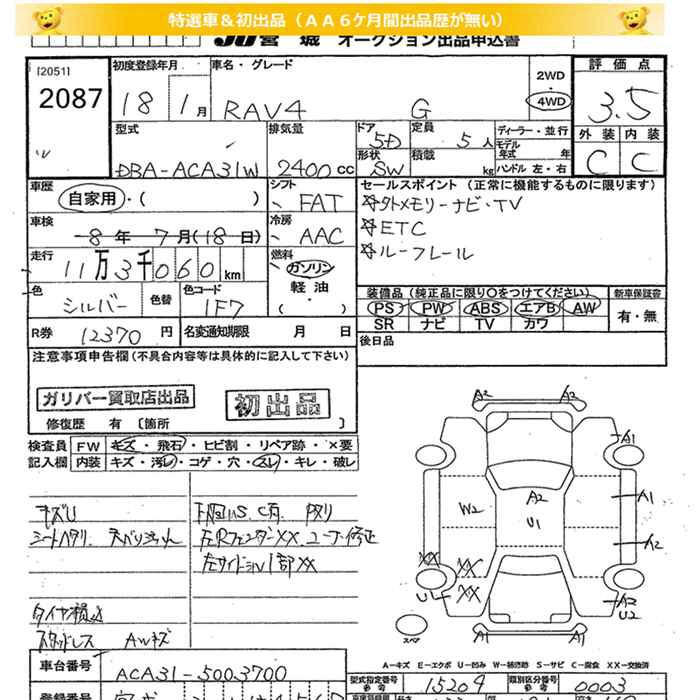 特選車＆初出品（ＡＡ６ケ月間出品歴が無い）
JU宮城 オークション出品申込書
[2051]
2087
初度登録年月
18 1月
車名・グレード
RAV4 G
2WD
4WD
評価点
3.5
外装 内装
C C
型式
DBA-ACA31W
排気量
2400cc
ドア
5D
形状
SW
定員
5人
積載
kg
ディーラー・並行
モデル年式 年
ハンドル 左・右
車歴
自家用・( )
シフト
FAT
車検
8年 7月(18日)
冷房
AAC
走行
11万3千060km
燃料
ガソリン
軽油
( )
色
シルバー
色替
色コード
1F7
R券 12370円
名変通知期限 月 日
セールスポイント（正常に機能するものに限ります）
☆外メモリーナビ・TV
☆ETC
☆ルーフレール
装備品（純正品に限り○をつけてください）
PS PW ABS エアB AW
SR ナビ TV カワ
新車保証書
有・無
後日品
注意事項申告欄（不具合内容等は具体的に記入して下さい）
ガリバー買取店出品
初出品
修復歴 有〔箇所 〕
検査員記入欄
FW キズ・飛石・ヒビ割・リペア跡・×要
内装 キズ・汚レ・コゲ・穴・スレ・キレ・破レ
キズU
シートヘタリ
下廻りS.C有
左RフェンダーXX
左サイドシル1部XX
タイヤ損
スタッドレス AWキズ
A2 A2
A1
A1
A2
W2
A2
U1
XX
XX
XX
U
A2
U2
A1 A1
スペア
A－キズ E－エクボ U－凹み W－補修跡 S－サビ C－腐食 XX－交換済
車台番号
ACA31-5003700
型式指定番号
参考
15204
類別区分番号
参考
0003
登録番号